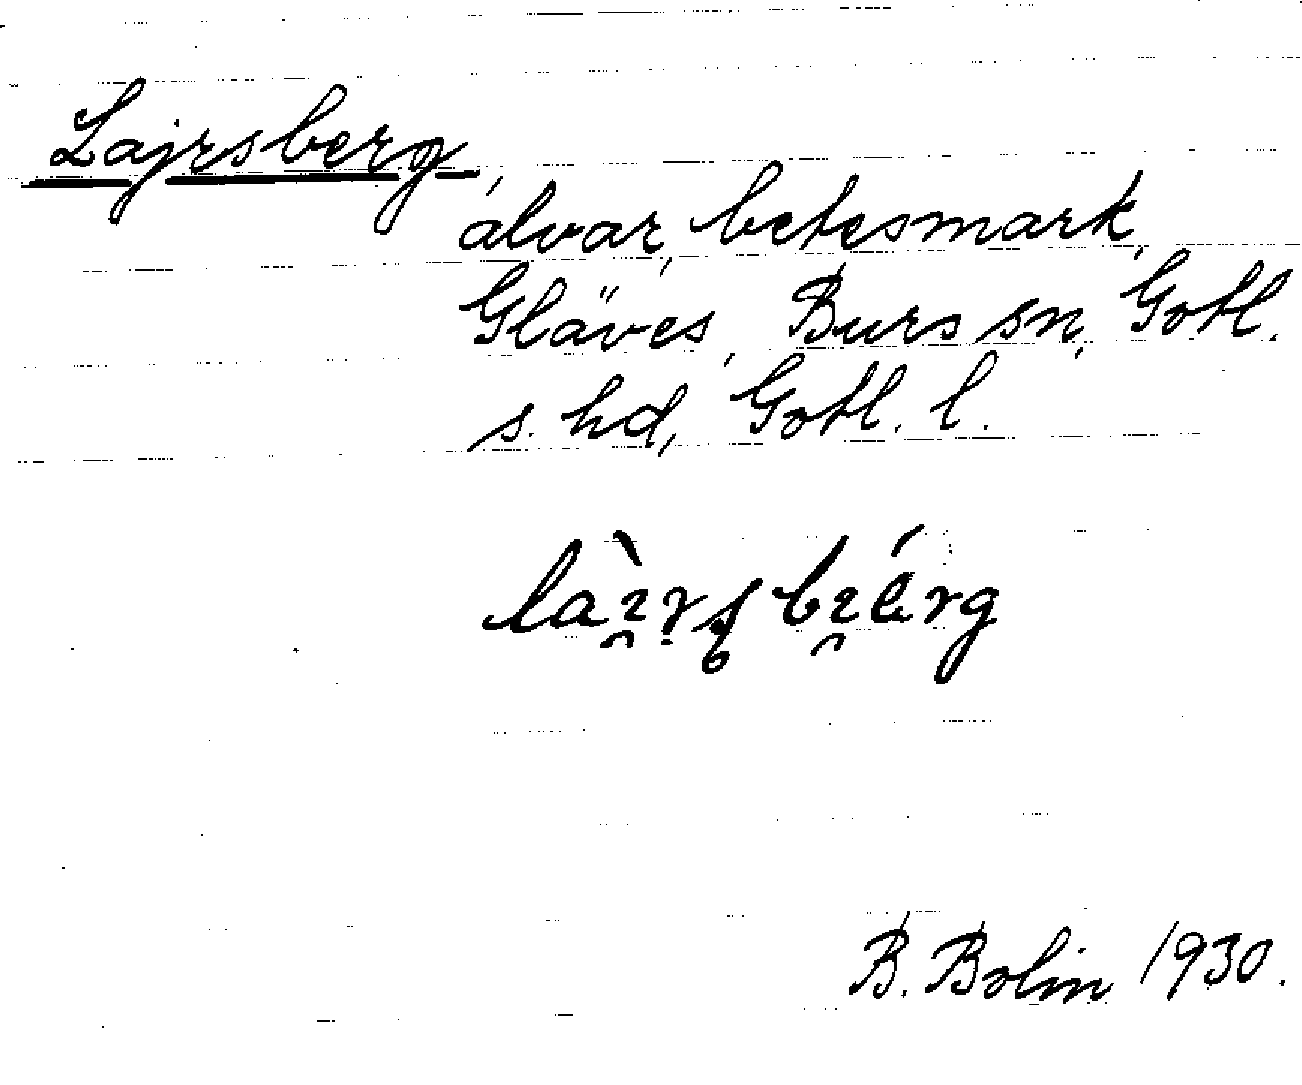 Lajrsberg,
alvar, betesmark,
Gläves, Burs sn, Gotl.
s. hd, Gotl. l.
B. Bolin 1930.